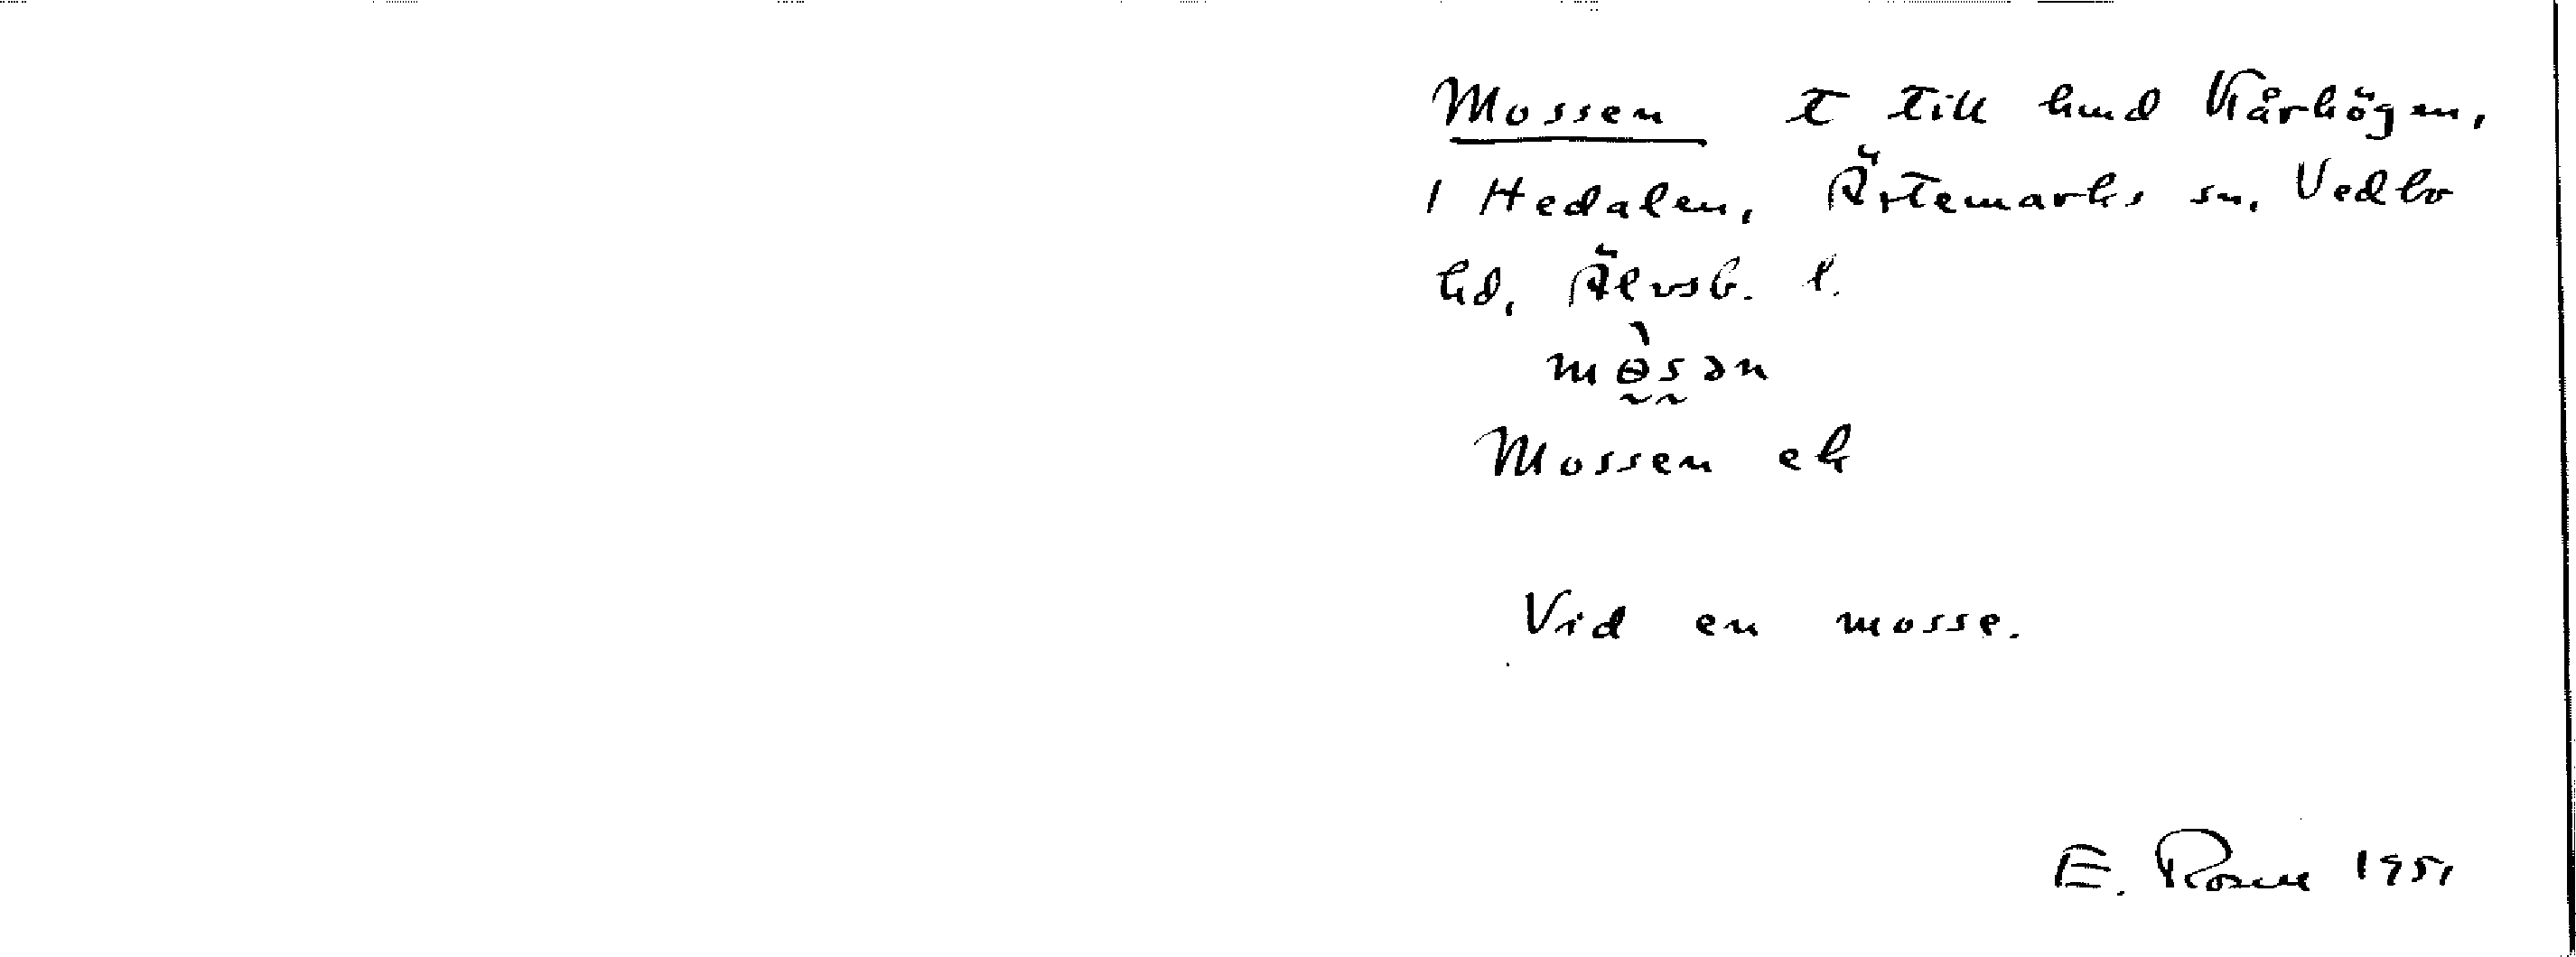 Mossen t till hmd Kårhögen,
1 Hedalen, Ärtemarks sn, Vedbo
hd, Älvsb. l.
mɵ̀sən
Mossen ek
Vid en mosse.
E. Rosell 1951